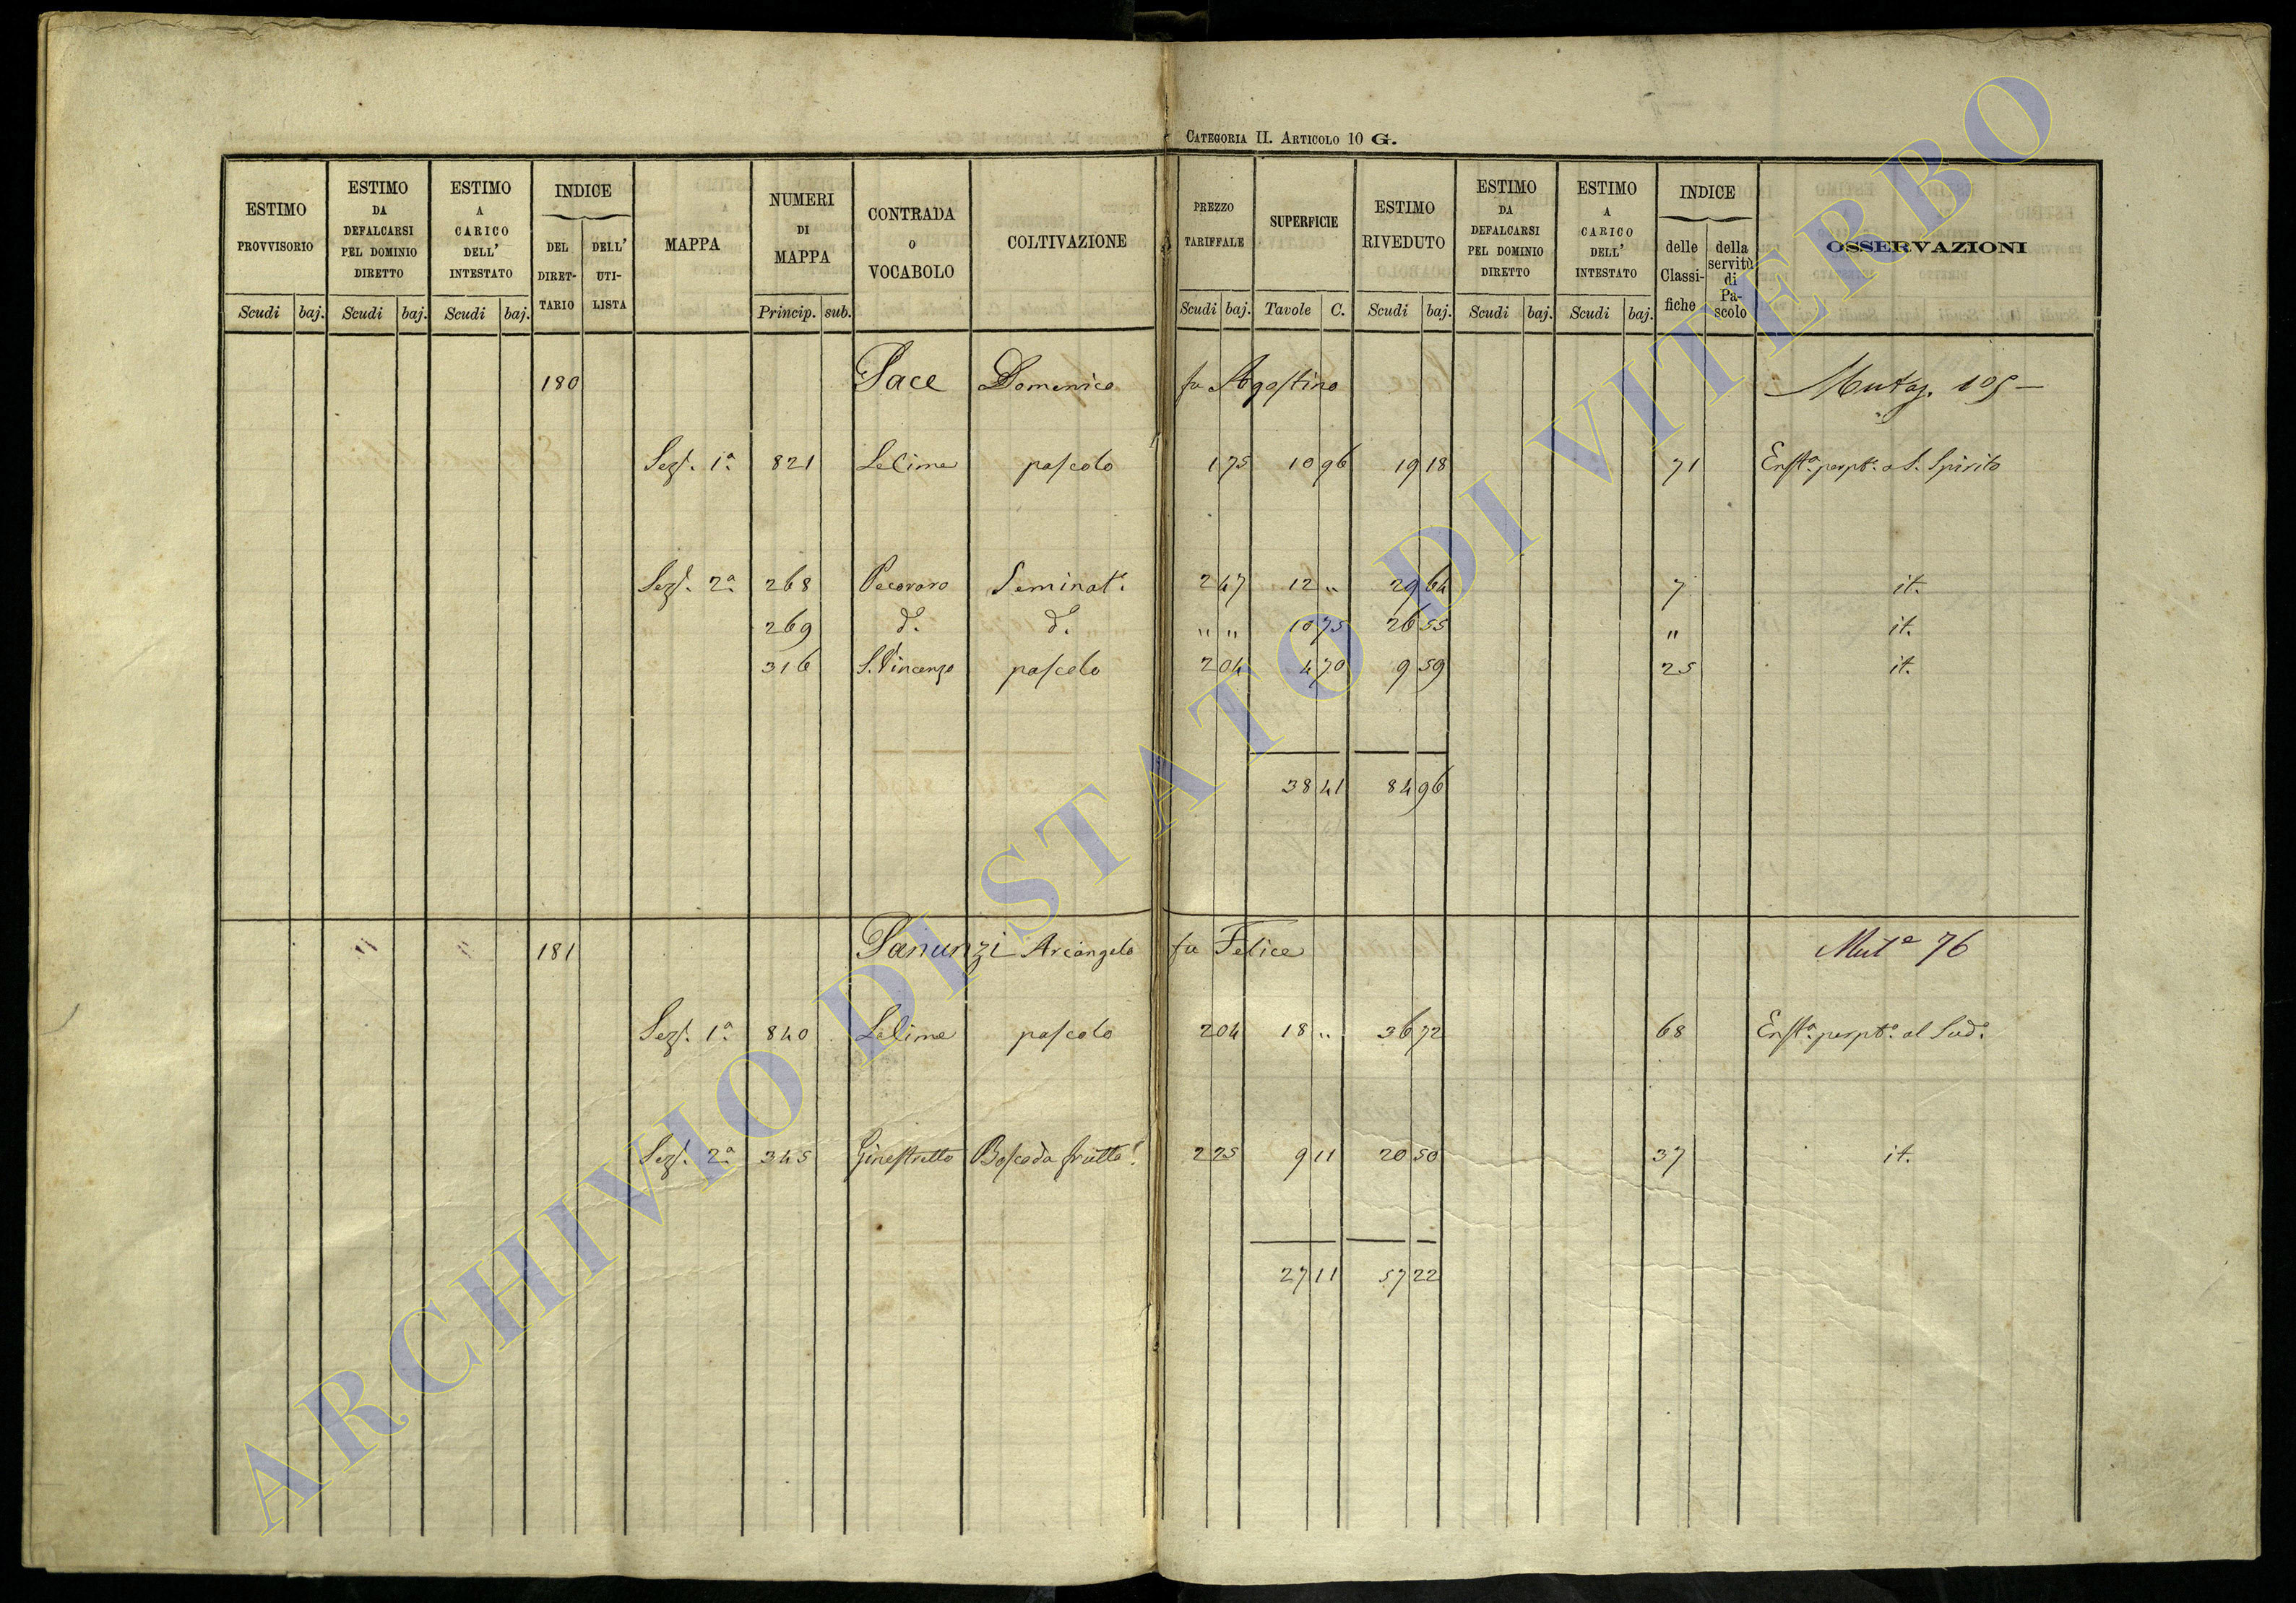 CATEGORIA II. ARTICOLO 10 G.
ESTIMO PROVVISORIO Scudi baj.
ESTIMO DA DEFALCARSI PEL DOMINIO DIRETTO Scudi baj.
ESTIMO A CARICO DELL' INTESTATO Scudi baj.
INDICE DEL DIRET-TARIO DELL' UTI-LISTA
MAPPA
NUMERI DI MAPPA Princip. sub.
CONTRADA O VOCABOLO
COLTIVAZIONE
PREZZO TARIFFALE Scudi baj.
SUPERFICIE Tavole C.
ESTIMO RIVEDUTO Scudi baj.
ESTIMO DA DEFALCARSI PEL DOMINIO DIRETTO Scudi baj.
ESTIMO A CARICO DELL' INTESTATO Scudi baj.
INDICE delle Classi-fiche della servitù di Pa-scolo
OSSERVAZIONI
180 Pace Domenico fu Agostino Mutaz. 105 —
Sezᵉ. 1ª 821 Lelime pascolo 1 75 10 96 19 18 71 Enftª. perptª. a S. Spirito
Sezᵉ. 2ª 268 Pecoraro Seminatº. 2 47 12 " 29 64 7 it.
269 dº. dº. " " 10 75 26 55 " it.
316 S. Vincenzo pascolo 2 04 4 70 9 59 25 it.
38 41 84 96
" " 181 Panunzi Arcangelo fu Felice Mutª 76
Sezᵉ. 1ª 840 Lelime pascolo 2 04 18 " 36 72 68 Enftª. perptª. al Sudº.
Sezᵉ. 2ª 345 Ginestretto Bosco da frutto 2 25 9 11 20 50 37 it.
27 11 57 22
ARCHIVIO DI STATO DI VITERBO